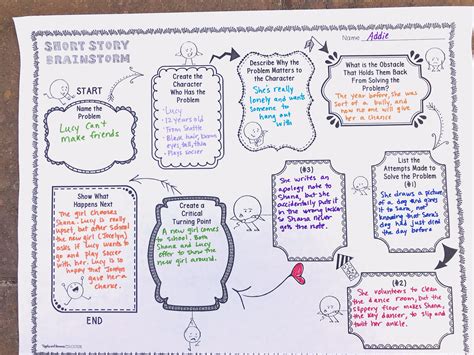 SHORT STORY
BRAINSTORM
Name Addie
START
Name the
Problem
Lucy Can't
make friends
Create the
Character
Who Has the
Problem
Lucy
12 years old
From Seattle
Black hair, brown
eyes, tall, thin
Plays soccer
Describe Why the
Problem Matters to
the Character
She's really
lonely and wants
someone to
hang out
with
What is the Obstacle
That Holds Them Back
From Solving the
Problem?
The year before, she was
sort of a bully, and
now no one will give
her a chance
List the
Attempts Made to
Solve the Problem
(#1)
She draws a picture
of a dog and gives
it to Sara, not
knowing that Sara's
dog had just died
the day before
(#2)
She volunteers to clean
the dance room, but the
slippery floor makes Shana,
the key dancer, to slip and
twist her ankle.
(#3)
She writes an
apology note to
Shana, but she
accidentally puts it
in the wrong locker
so Shana never
gets the note.
Create a
Critical
Turning Point
A new girl comes
to school. Both
Shana and Lucy
offer to show the
new girl around.
Show What
Happens Next
The girl chooses
Shana. Lucy is really
upset, but after school
the new girl
asks if Lucy wants to
go and play soccer
with her. Lucy is so
happy that
gave her a
chance.
END